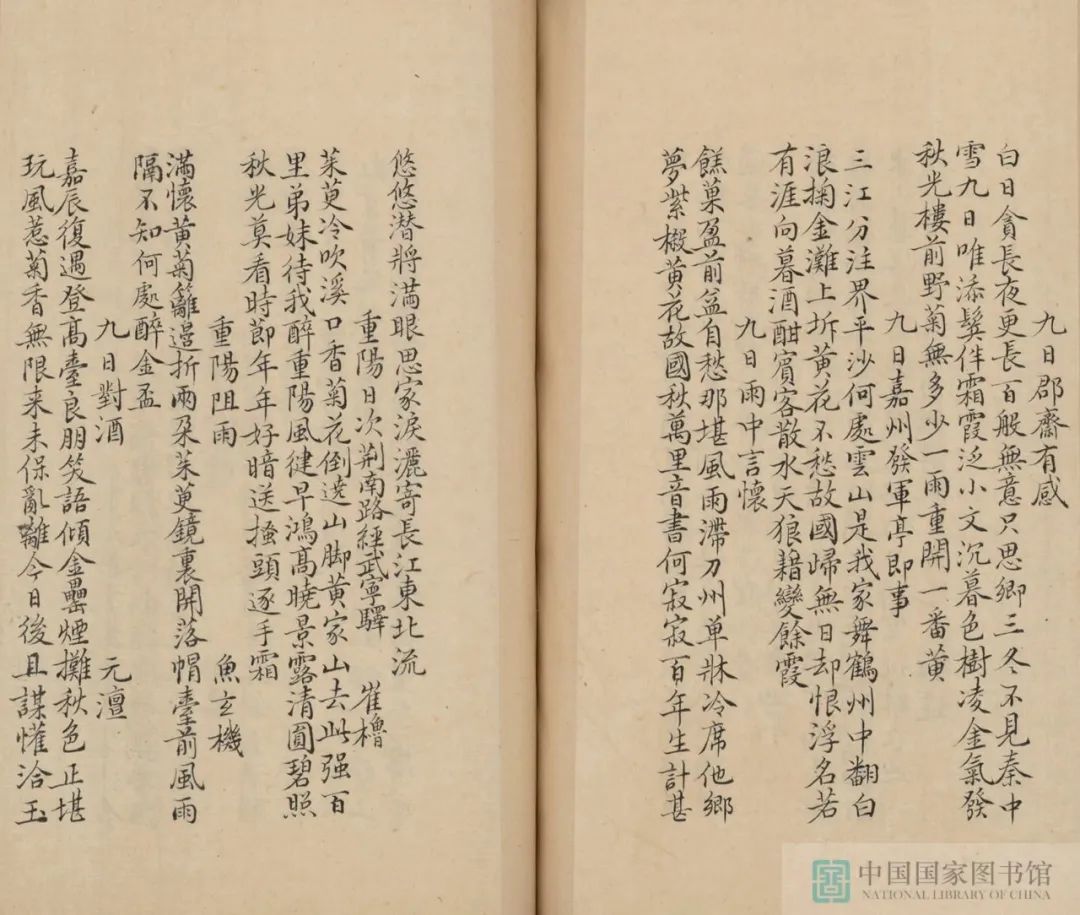 九日郡齋有感
白日貪長夜更長百般無意只思鄉三冬不見秦中
雪九日唯添鬓伴霜霞泛小文沉暮色樹凌金氣發
秋光樓前野菊無多少一雨重開一番黄
九日嘉州發軍亭即事
三江分注界平沙何處雲山是我家舞鶴州中翻白
浪掬金灘上坼黄花不愁故國歸無日却恨浮名若
有涯向暮酒酣賓客散水天狼藉變餘霞
九日雨中言懷
餻菓盈前益自愁那堪風雨滯刀州單牀冷席他鄉
夢紫椴黄花故國秋萬里音書何寂寂百年生計甚
悠悠潜將滿眼思家淚灑寄長江東北流
重陽日次荆南路經武寧驛 崔櫓
茱萸冷吹溪口香菊花倒遶山脚黄家山去此强百
里弟妹待我醉重陽風健早鴻高曉景露清圓碧照
秋光莫看時節年年好暗送搔頭逐手霜
重陽阻雨 魚玄機
滿懷黄菊籬邉折兩朶茱萸鏡裏開落帽臺前風雨
隔不知何處醉金盃
九日對酒 元澶
嘉辰復遇登高臺良朋笑語傾金罍煙攤秋色正堪
玩風惹菊香無限来未保亂離今日後且謀懽洽玉
中国国家图书馆
NATIONAL LIBRARY OF CHINA